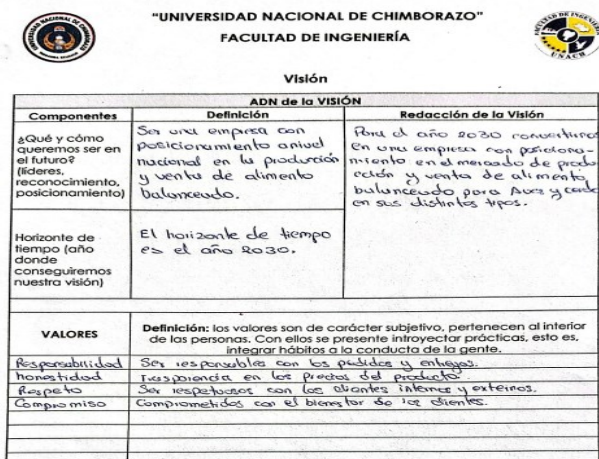 "UNIVERSIDAD NACIONAL DE CHIMBORAZO"
FACULTAD DE INGENIERÍA
Visión
ADN de la VISIÓN
Componentes
Definición
Redacción de la Visión
¿Qué y cómo
queremos ser en
el futuro?
(líderes,
reconocimiento,
posicionamiento)
Ser una empresa con
posicionamiento a nivel
nacional en la producción
y venta de alimento
balanceado.
Para el año 2030 convertirnos
en una empresa con posiciona-
miento en el mercado de produ-
cción y venta de alimento
balanceado para Aves y
en sus distintos tipos.
Horizonte de
tiempo (año
donde
conseguiremos
nuestra visión)
El horizonte de tiempo
es el año 2030.
VALORES
Definición: los valores son de carácter subjetivo, pertenecen al interior
de las personas. Con ellos se presente introyectar prácticas, esto es,
integrar hábitos a la conducta de la gente.
Responsabilidad
Ser responsables con los pedidos y entregas.
honestidad
en los precios del producto
Respeto
Ser respetuosos con los clientes internos y externos.
Compromiso
Comprometidos con el bienestar de los clientes.